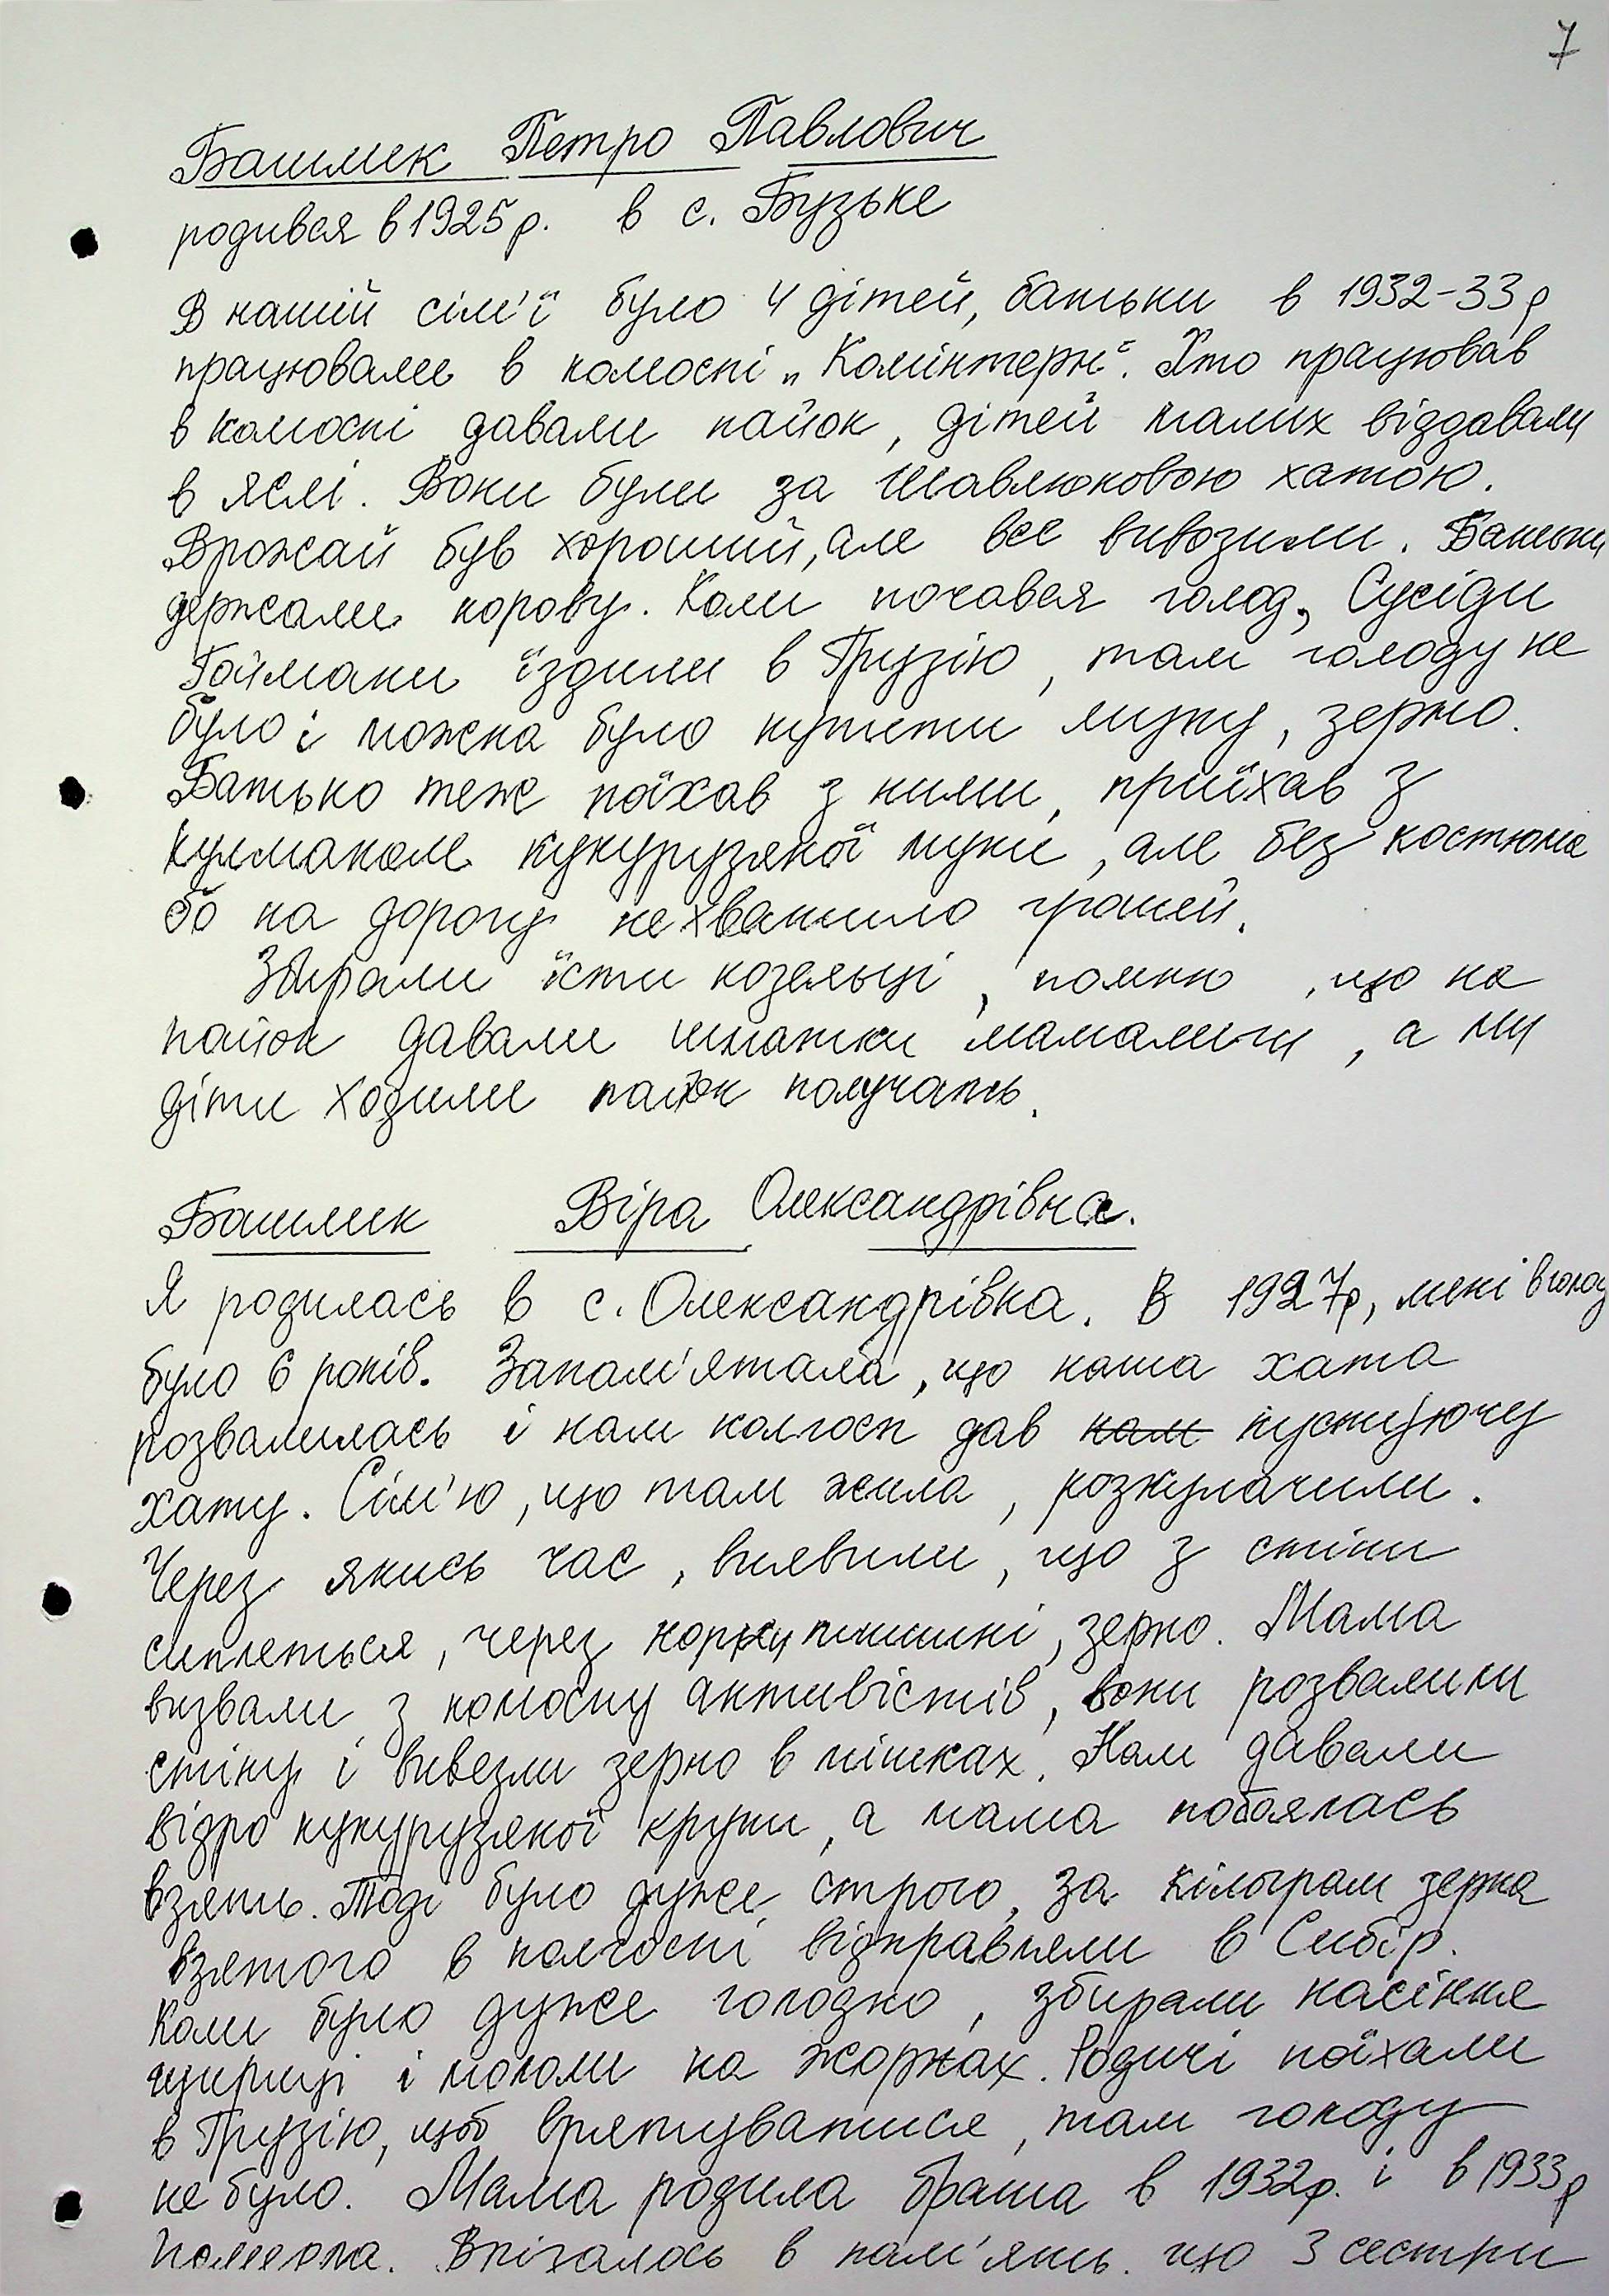 7
Башлик Петро Павлович
родився в 1925 р. в с. Бузьке
В нашій сім'ї було 4 дітей, батьки в 1932-33 р
працювали в колоспі „Комінтерн". Хто працював
в колоспі давали пайок, дітей малих віддавали
в яслі. Вони були за Шавлюковою хатою.
Врожай був хороший, але все вивозили. Батьки
держали корову. Коли почався голод, Сусіди
Гоймани їздили в Грузію, там голоду не
було і можна було купити муку, зерно.
Батько теж поїхав з ними, приїхав з
кулмаком кукурузяної муки, але без костюма
бо на дорогу не хватило грошей.
Збирали їсти козельці, помню, що на
пайок давали шматки мамалиги, а ми
діти ходили пайок получать.
Башлик Віра Олександрівна.
Я родилась в с. Олександрівка. В 1927р, мені в голод
було 6 років. Запам'ятала, що наша хата
розвалилась і нам колгосп дав нам пустуючу
хату. Сім'ю, що там жила, розкулачили.
Через якись час, виявили, що з стіни
сиплеться, через норку мишині, зерно. Мама
визвали з колоспу активістів, вони розвалили
стіну і вивезли зерно в мішках. Нам давали
відро кукурузяної крупи, а мама побоялась
взять. Тоді було дуже строго, за кілограм зерна
взятого в колгоспі відправляли в Сибір.
Коли було дуже голодно, збирали насіння
щириці і мололи на жорнах. Родичі поїхали
в Грузію, щоб врятуватися, там голоду
не було. Мама родила брата в 1932р. і в 1933р
померла. Врізалось в пам'ять що 3 сестри